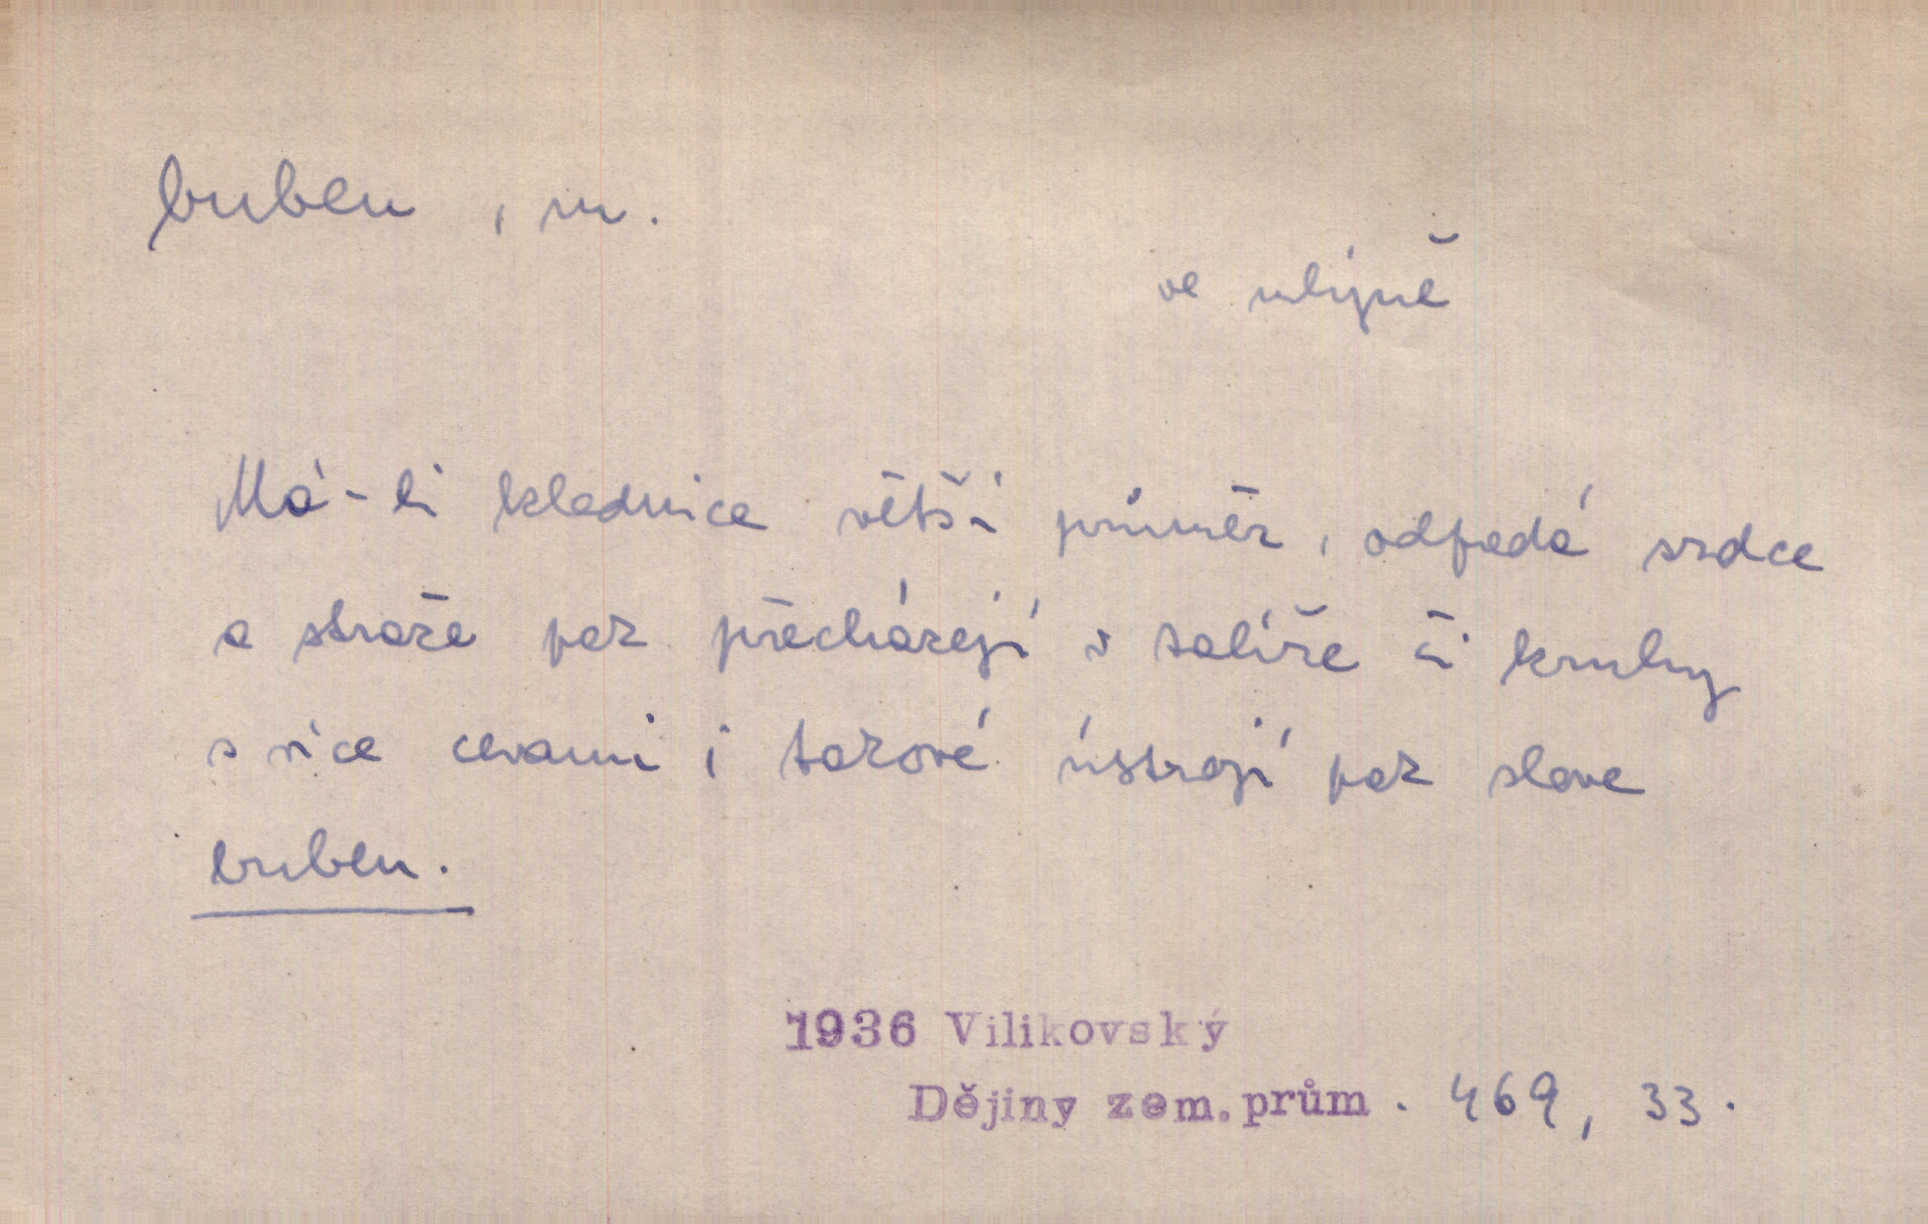 buben, m.
ve mlýně
Má-li kladnice větší průměr, odpadá srdce
a stráže pak přecházejí v talíře či kruhy
s více cevami i takové ústrojí pak slove
buben.
1936 Vilikovský
Dějiny zem. prům. 469, 33.